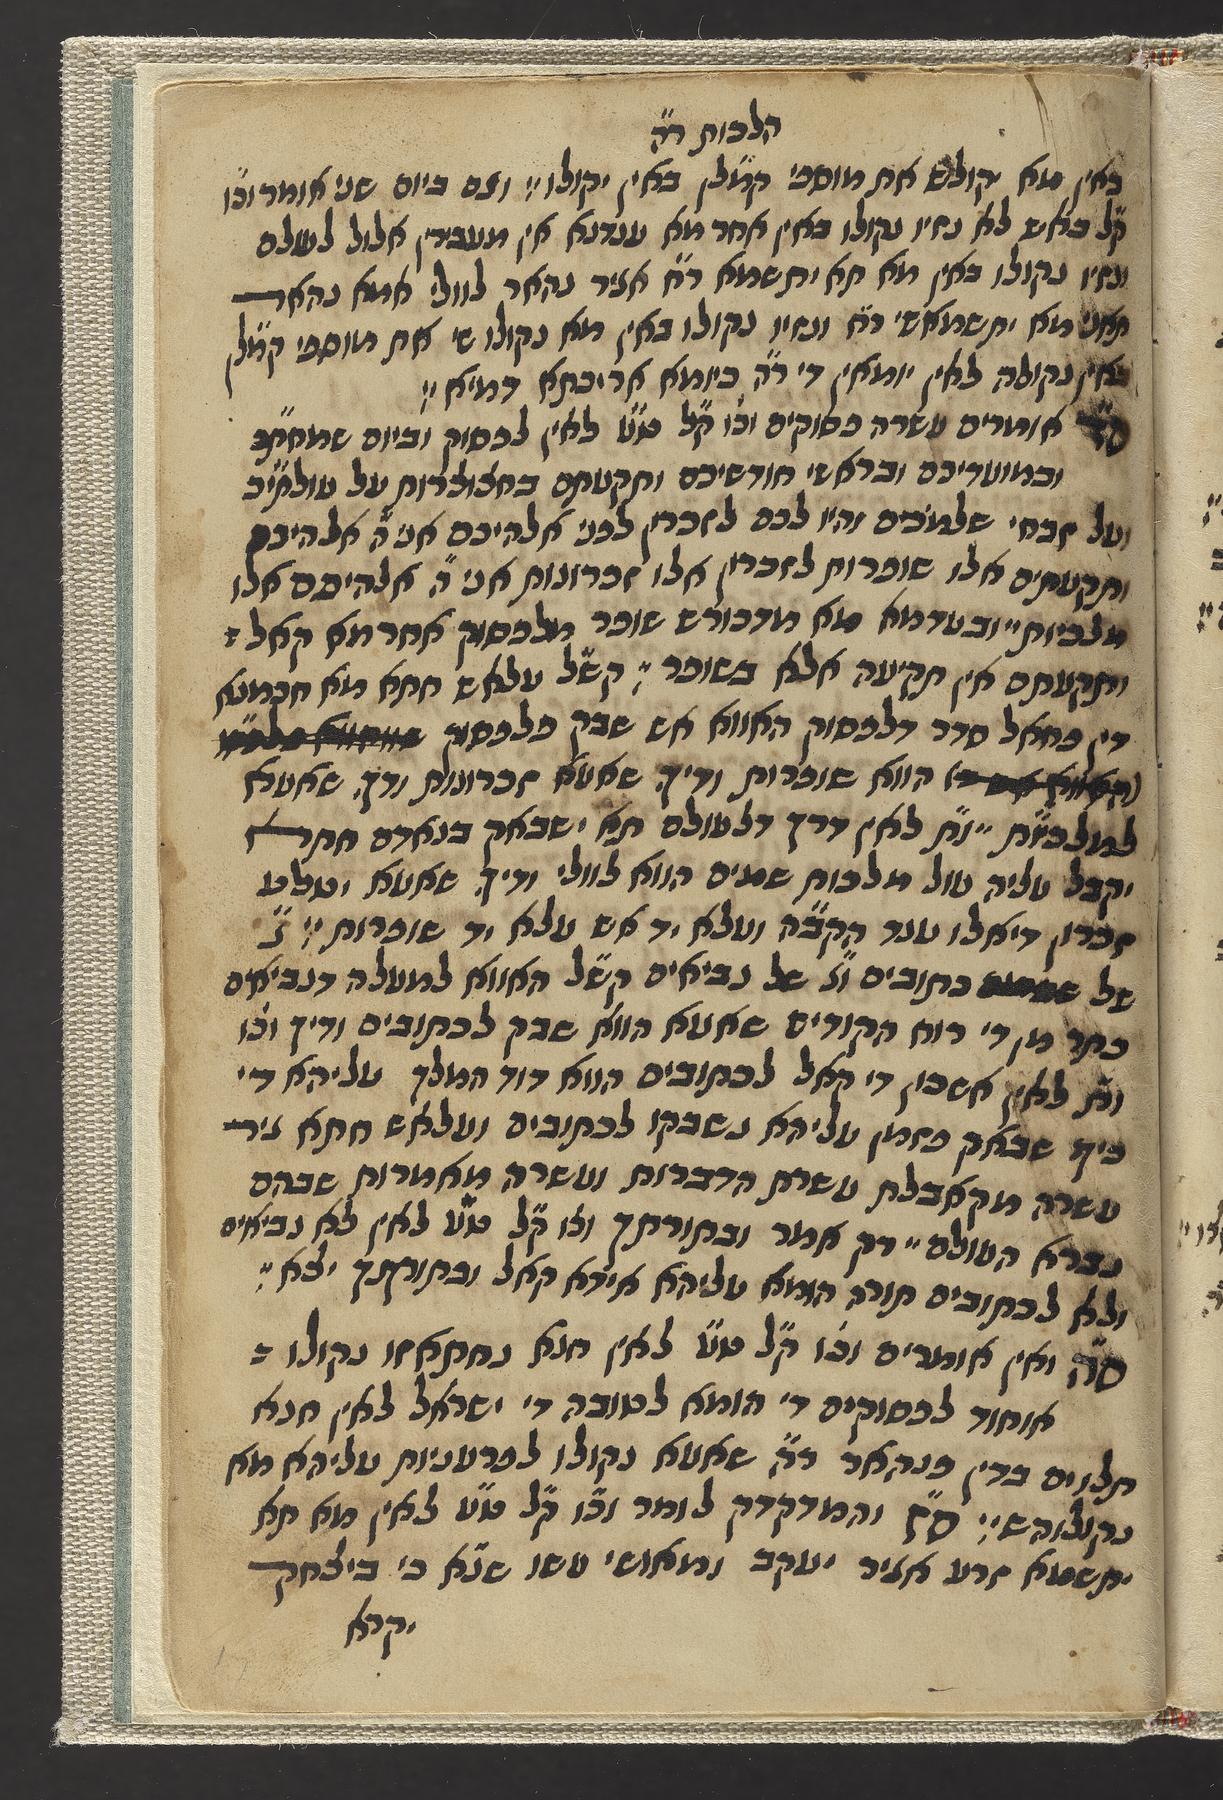 הלכות ר״ה
כאין מא יקולש את מוספי קמ״לן באין יקולו ׃ וגם ביום שני אומר וכו׳
ק״ל באש לא נזיו נקולו באין אחר מא ענדנא אין מעברין אלול לעולם
ונזיו נקולו באין מא תא יתסמא ר״ח אציר נהאר לוולי אמא נהאר
תאני מא יתסמאשי ר״ח ונזיו נקולו באין מא נקולו שי את מוספי קמ״לן
באין נקולה לאין יומאין די ר״ה כיומא אריכתא דמיא ׃
ס״ד אומרים עשרה פסוקים וכו׳ ק״ל ט״ע לאין לפסוק וביום שמחתכם
ובמועדיכם ובראשי חודשיכם ותקעתם בחצוצרות על עולתיכ
ועל זבחי שלמכים והיו לכם לזכרון לפני אלהיכם אני ה׳ אלהיכם
ותקעתים אלו שופרות לזכרון אלו זכרונות אני ה׳ אלהיכם אלו
מלכיות ״ ובעדמא מא מדכורש שופר פלפסוק אחר מא קאל
ותקעתם אין תקיעה אלא בשופר ׃ קש״ל עלאש חתא מא חכמנא
דין פחאל סדר דלפסוק האווא אש שבק פלפסוק
הווא שופרות ודיך שאעא זכרונות ודך שאעא
למלכיות ״ ו״ת לאין דרך דלעולם תא ישבאק בנאדם חתר
יקבל עליה עול מלכות שמים הווא לוולי ודיך שאעא יטלע
זכרון דיאלו ענד הקב״ה ועלא יד אש עלא יד שופרות ׃ ג״
של כתובים וג׳ של נביאים קש״ל האווא למעלה דנביאים
כתר מן די רוח הקודים שאעא הווא שבק לכתובים ודיך וכו׳
ות׳ לאין אשכון די קאל לכתובים הווא דוד המלך עליהא די
כיף שבאק פזמן עליהא נשבקו לכתובים ועלאש חתא ציר
עשרה מקאבלת עשרת הדברות ועשרה מאמרות שבהם
נברא העולם ״ רק אמר ובתורתך וכו׳ ק״ל ט״ע לאין לא נביאים
ולא לכתובים תורה הומא עליהא אידא קאל ובתורתך יצא ׃
ס״ה ואין אומרים וכו׳ ק״ל ט״ע לאין חנא נחתאזו נקולו
אוחוד לפסוקים די הומא לטובה די ישראל לאין חנא
תלויים בדין פנהאר ר״ה שאעא נקולו לפרעניות עליהא מא
נקולוהשי ׃ ס״ז והמדקדק לומר וכו׳ ק״ל ט״ע לאין מא תא
יתסמא זרע אציר יעקב ומאושי עשו שנ״א כי ביצחק
יקרא